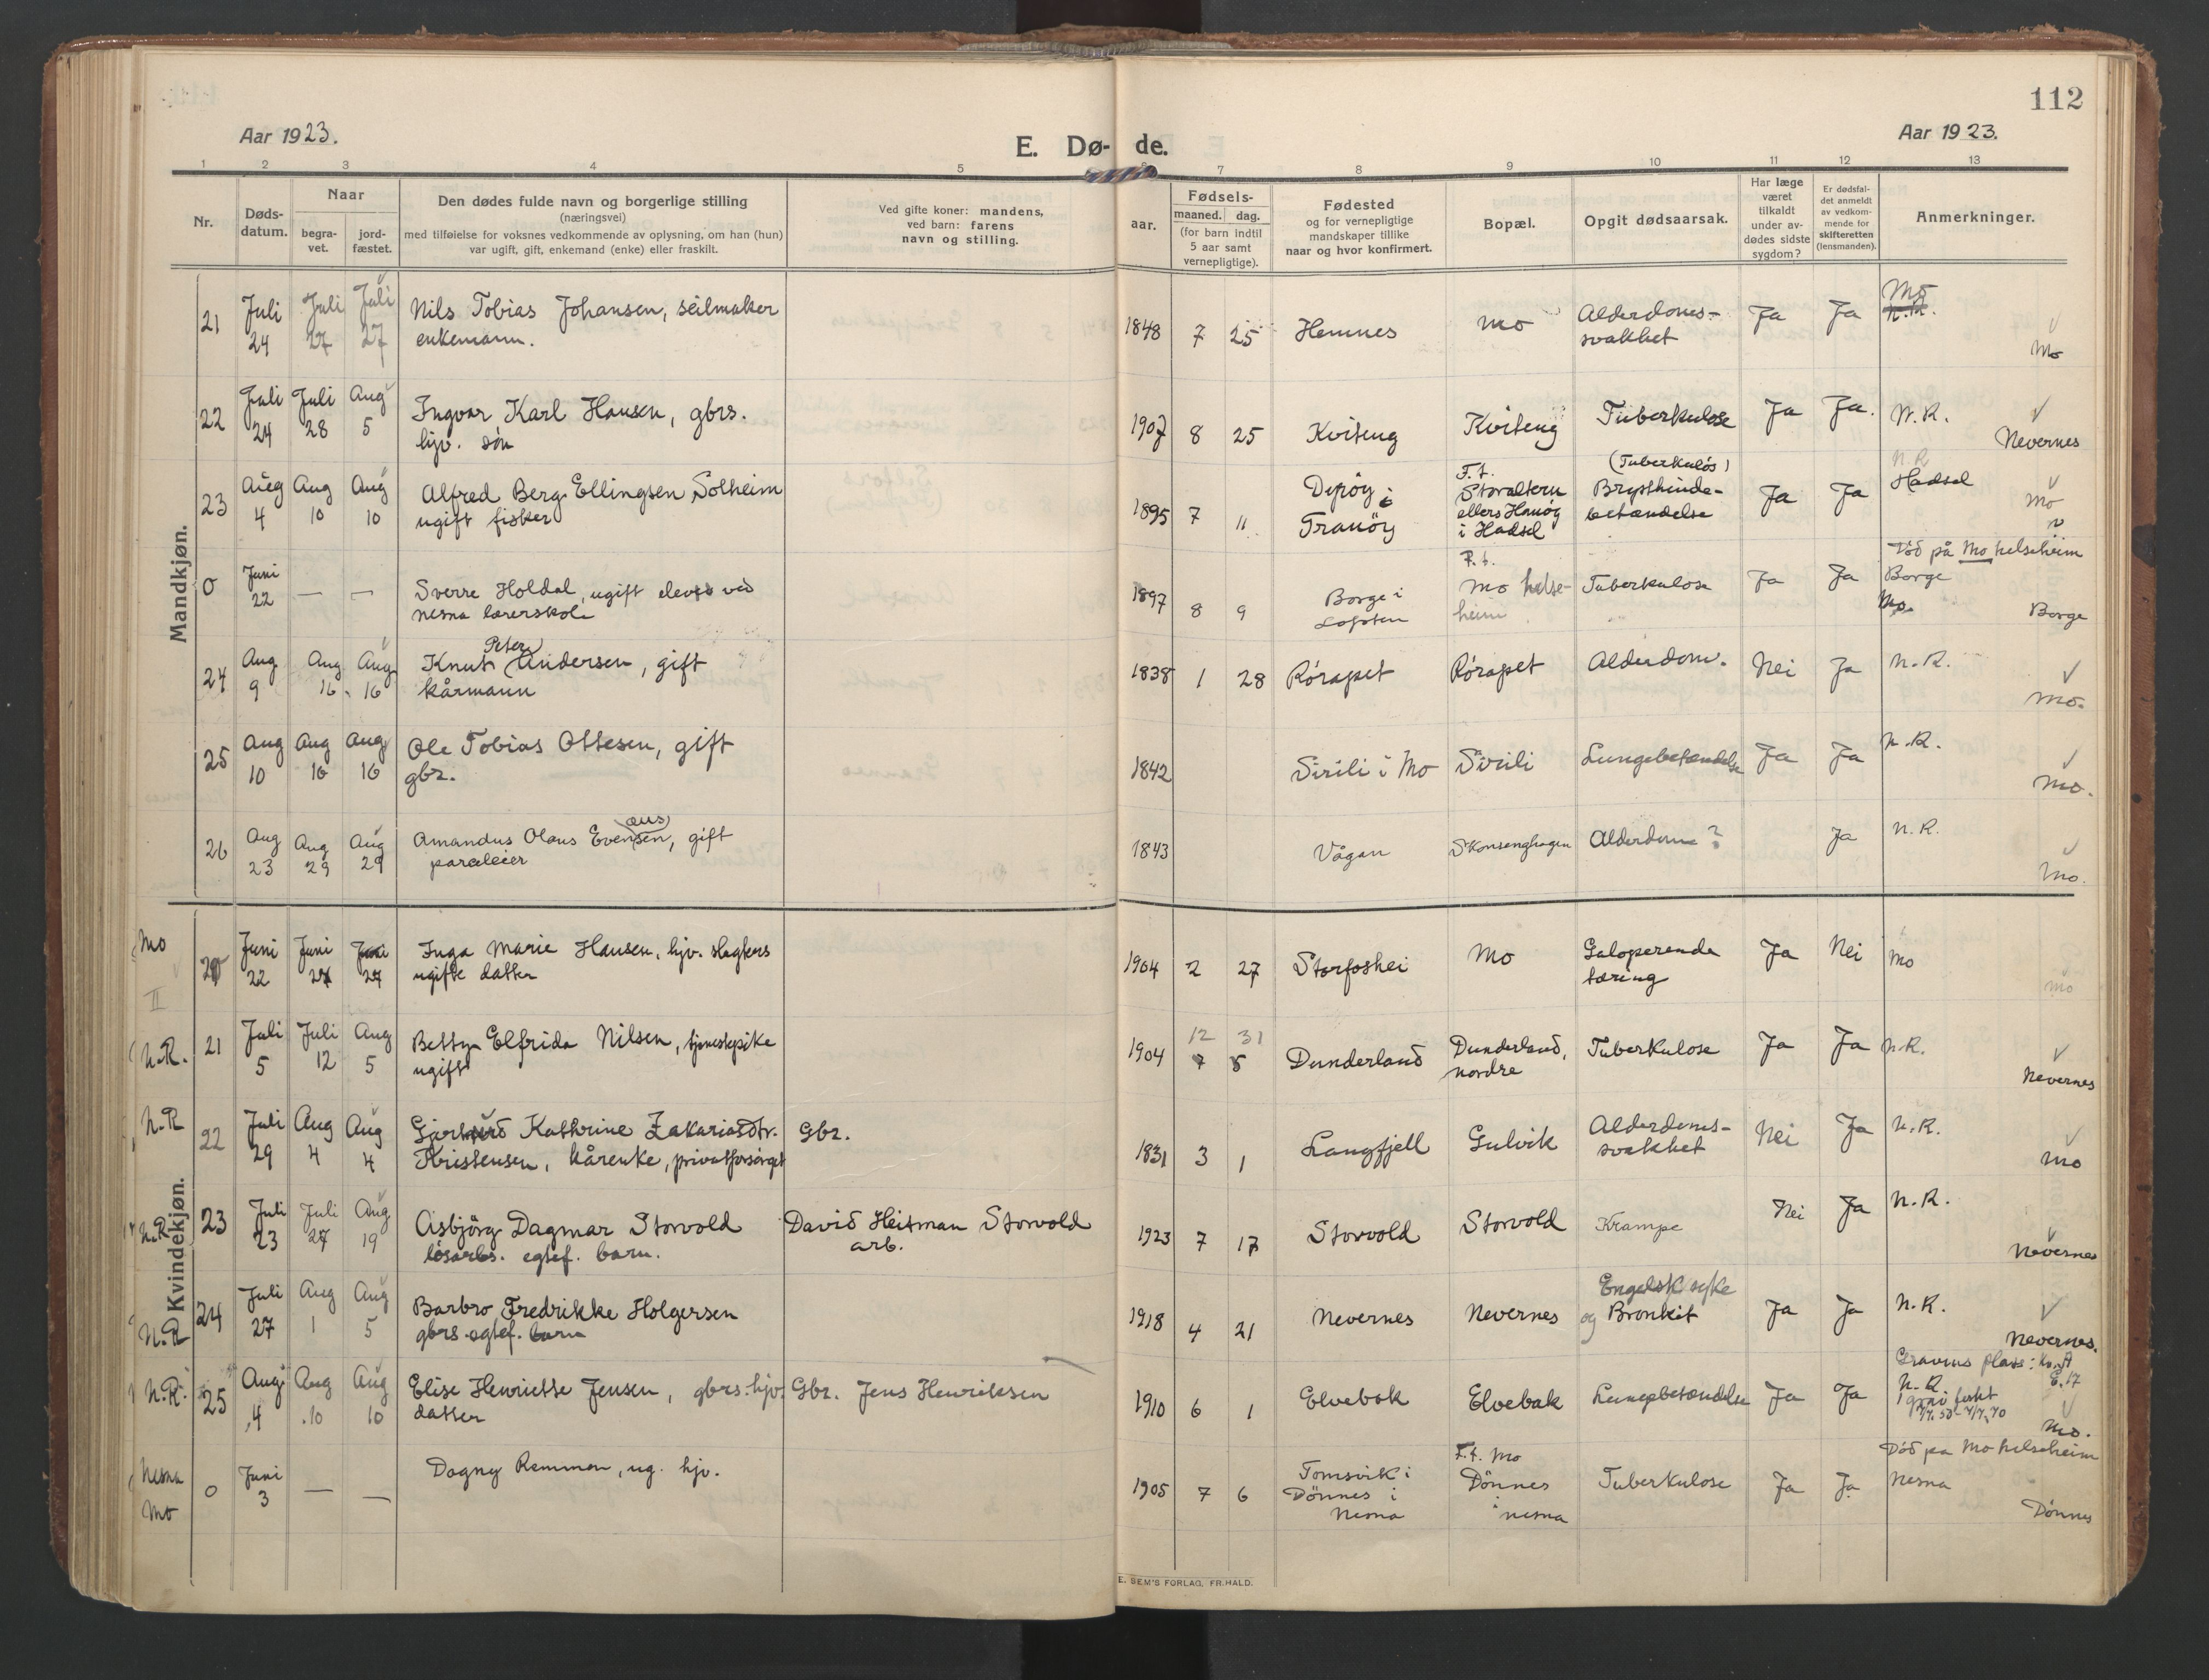 112
Aar 1923.
E. Dø-
de.
Aar 1923.
1 2 3 4 5 6 7 8 9 10 11 12 13
Nr.
Døds-
datum.
Naar
begra-
vet.
jord-
fæstet.
Den dødes fulde navn og borgerlige stilling
(næringsvei)
med tilføielse for voksnes vedkommende av oplysning, om han (hun)
var ugift, gift, enkemand (enke) eller fraskilt.
Ved gifte koner: mandens,
ved barn: farens
navn og stilling.
aar.
Fødsels-
maaned. dag.
(for barn indtil
5 aar samt
vernepligtige).
Fødested
og for vernepligtige
mandskaper tillike
naar og hvor konfirmert.
Bopæl.
Opgit dødsaarsak.
Har læge
været
tilkaldt
under av-
dødes sidste
sygdom?
Er dødsfal-
det anmeldt
av vedkom-
mende for
skifteretten
(lensmanden).
Anmerkninger.
Mandkjøn.
21 Juli 24 Juli 27 Juli 27 Nils Tobias Johansen, seilmaker
enkemann.
1848 7 25 Hemnes Mo Alderdoms-
svakhet Ja Ja Mo
N.R.
Mo
22 Juli 24 Juli 28 Aug 5 Ingvar Karl Hansen, gbrs.
hjv. søn
1907 8 25 Kviteng Kviteng Tuberkulose Ja Ja. N.R.
Nevernes
23 Aug 4 Aug 10 Aug 10 Alfred Berg Ellingsen Solheim
ugift fisker
1895 7 11 Dyrøy i
Tranöy
F.t.
ellers Hanøy
i Hadsel
(Tuberkuløs)
Brysthinde-
betændelse
Ja Ja N.R
Hadsel
Mo
0 Juni 22 — — Sverre Holdal, ugift elev ved
Nesna lærerskole
1897 8 9 Borge i
Lofoten
F.t.
Mo helse-
heim
Tuberkulose Ja Ja Död på Mo helseheim
Borge
Mo.
Borge
24 Aug 9 Aug 16 Aug 16 Knut Peter Andersen, gift
kårmann
1838 1 28 Rørapet Rørapet Alderdom. Nei Ja N.R.
Mo.
25 Aug 10 Aug 16 Aug 16 Ole Tobias Ottesen, gift
gbr.
1842 Sirili i Mo Sirili Lungebetændelse Ja Ja N.R.
Mo.
26 Aug 23 Aug 29 Aug 29 Amandus Olaus Evensen, gift
aus
parceleier
1843 Vågan Skonsenghagen Alderdom ? Ja N.R.
Mo.
Kvindekjøn.
Mo
II
20 Juni 22 Juni 27 Juni 27 Inga Marie Hansen, hjv. slagters
ugifte datter
1904 2 27 Storfoshei Mo Galoperende
tæring Ja Nei Mo
Mo
N.R. 21 Juli 5 Juli 12 Aug 5 Betty Elfrida Nilsen, tjenestepike
ugift
1904 12 31
7 5 Dunderland Dunderland,
nordre Tuberkulose Ja Ja N.R.
Nevernes
N.R 22 Juli 29 Aug 4 Aug 4 Kathrine Zakariasdtr.
Kristensen, kårenke, privatforsörget
Gbr.
1831 3 1 Langfjell Gulvik Alderdoms-
svakhet Nei Ja N.R.
Mo
N.R 23 Juli 23 Juli 27 Aug 19 Asbjörg Dagmar Storvold
lösarbs. egtef. barn.
David Heitman Storvold
arb.
1923 7 17 Storvold Storvold Krampe Nei Ja N.R.
Nevernes
N.R 24 Juli 27 Aug 1 Aug 5 Barbro Fredrikke Holgersen
gbrs. egtef. barn
1918 4 21 Nevernes Nevernes Engelsk syke
og Bronkit Ja Ja N.R.
Nevernes.
N.R. 25 Aug 4 Aug 10 Aug 10 Elise Henriette Jensen, gbrs. hjv.
datter
Gbr. Jens Henriksen
1910 6 1 Elvebak Elvebak Lungebetændelse Ja Ja Gravens plass: Kv. A
E. 17
N.R.
1 grav festet
Mo.
Nesna
Mo
0 Juni 3 — — Dagny Remmen, ug. hjv.
1905 7 6 Tomsvik i
Dönnes i
Nesna
F.t. Mo
Dönnes
i Nesna
Tuberkulose Ja Ja Död på Mo helseheim
Nesna
Dönnes
E. SEM'S FORLAG, FR.HALD.